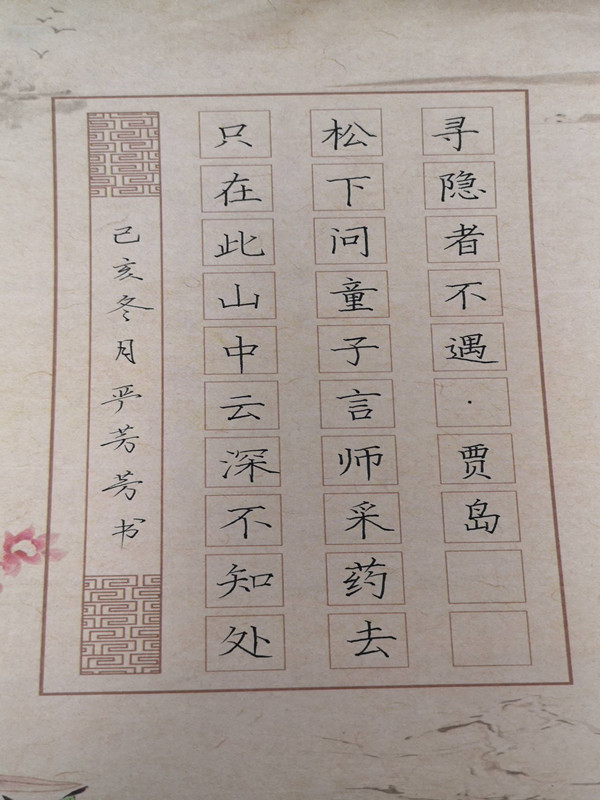 寻隐者不遇·贾岛
松下问童子言师采药去
只在此山中云深不知处
己亥冬月严芳芳书